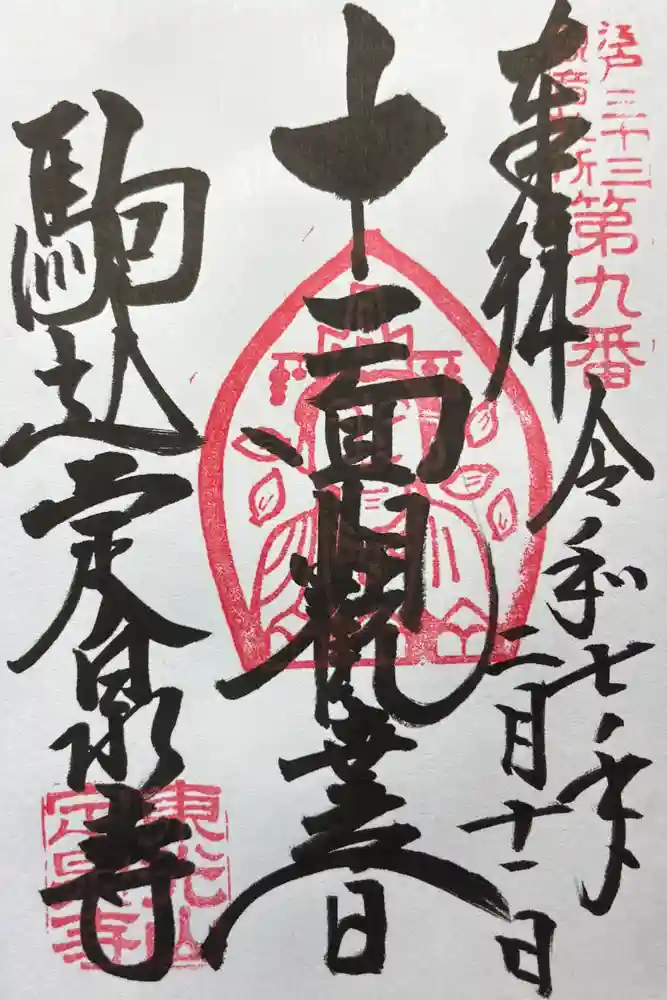 江戸三十三
観音札所
第九番
奉拝
令和七年
二月十一日
十一面観世音
駒込定泉寺
東光山
定泉寺